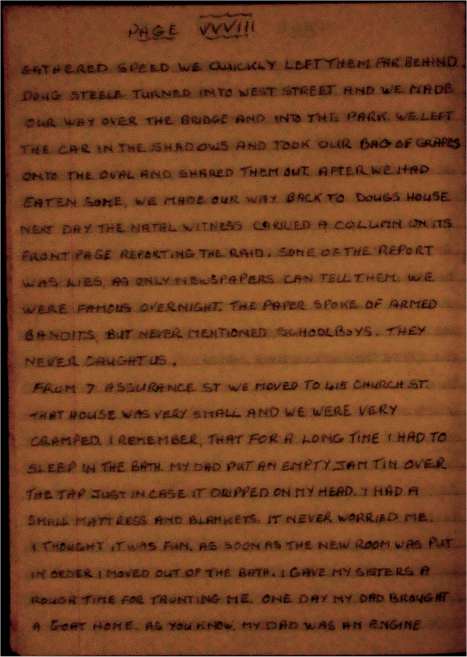 PAGE VVVIII
GATHERED SPEED WE QUICKLY LEFT THEM FAR BEHIND.
DOUG STEELE TURNED INTO WEST STREET AND WE MADE
OUR WAY OVER THE BRIDGE AND INTO THE PARK. WE LEFT
THE CAR IN THE SHADOWS AND TOOK OUR BAG OF GRAPES
ONTO THE OVAL AND SHARED THEM OUT. AFTER WE HAD
EATEN SOME, WE MADE OUR WAY BACK TO DOUGS HOUSE
NEXT DAY THE NATAL WITNESS CARRIED A COLUMN ON ITS
FRONT PAGE REPORTING THE RAID. SOME OF THE REPORT
WAS LIES, AS ONLY NEWSPAPERS CAN TELL THEM. WE
WERE FAMOUS OVERNIGHT. THE PAPER SPOKE OF ARMED
BANDITS, BUT NEVER MENTIONED SCHOOLBOYS. THEY
NEVER CAUGHT US.
FROM 7 ASSURANCE ST WE MOVED TO 415 CHURCH ST.
THAT HOUSE WAS VERY SMALL AND WE WERE VERY
CRAMPED. I REMEMBER, THAT FOR A LONG TIME I HAD TO
SLEEP IN THE BATH. MY DAD PUT AN EMPTY JAM TIN OVER
THE TAP JUST IN CASE IT DRIPPED ON MY HEAD. I HAD A
SMALL MATTRESS AND BLANKETS. IT NEVER WORRIED ME.
I THOUGHT IT WAS FUN. AS SOON AS THE NEW ROOM WAS PUT
IN ORDER I MOVED OUT OF THE BATH. I GAVE MY SISTERS A
ROUGH TIME FOR TAUNTING ME. ONE DAY MY DAD BROUGHT
A GOAT HOME. AS YOU KNOW, MY DAD WAS AN ENGINE